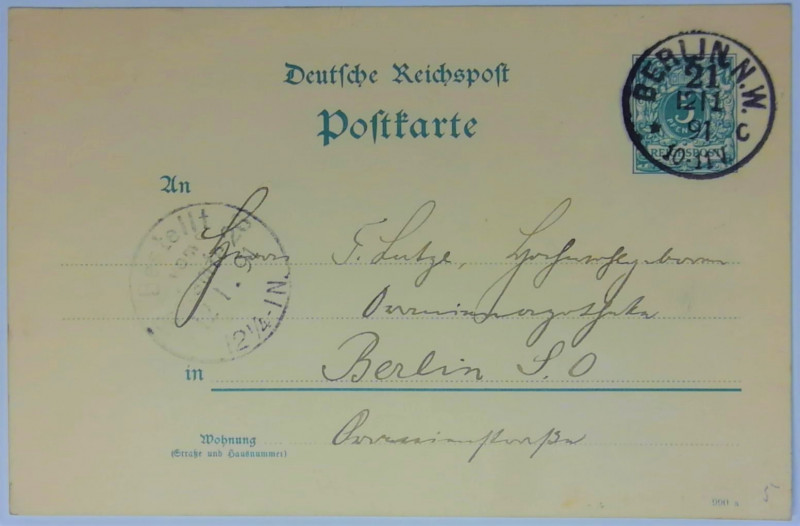 Deutsche Reichspost
Postkarte
BERLIN N.W.
21
12 1
91
* c
10-11 V.
REICHSPOST
An
Bestellt
vom
1. 91
12¼-1N.
Herrn F. Lutze, Hochwohlgeboren
Oranienapotheke
in Berlin S.O
Wohnung
(Straße und Hausnummer)
Oranienstraße
990 s
5